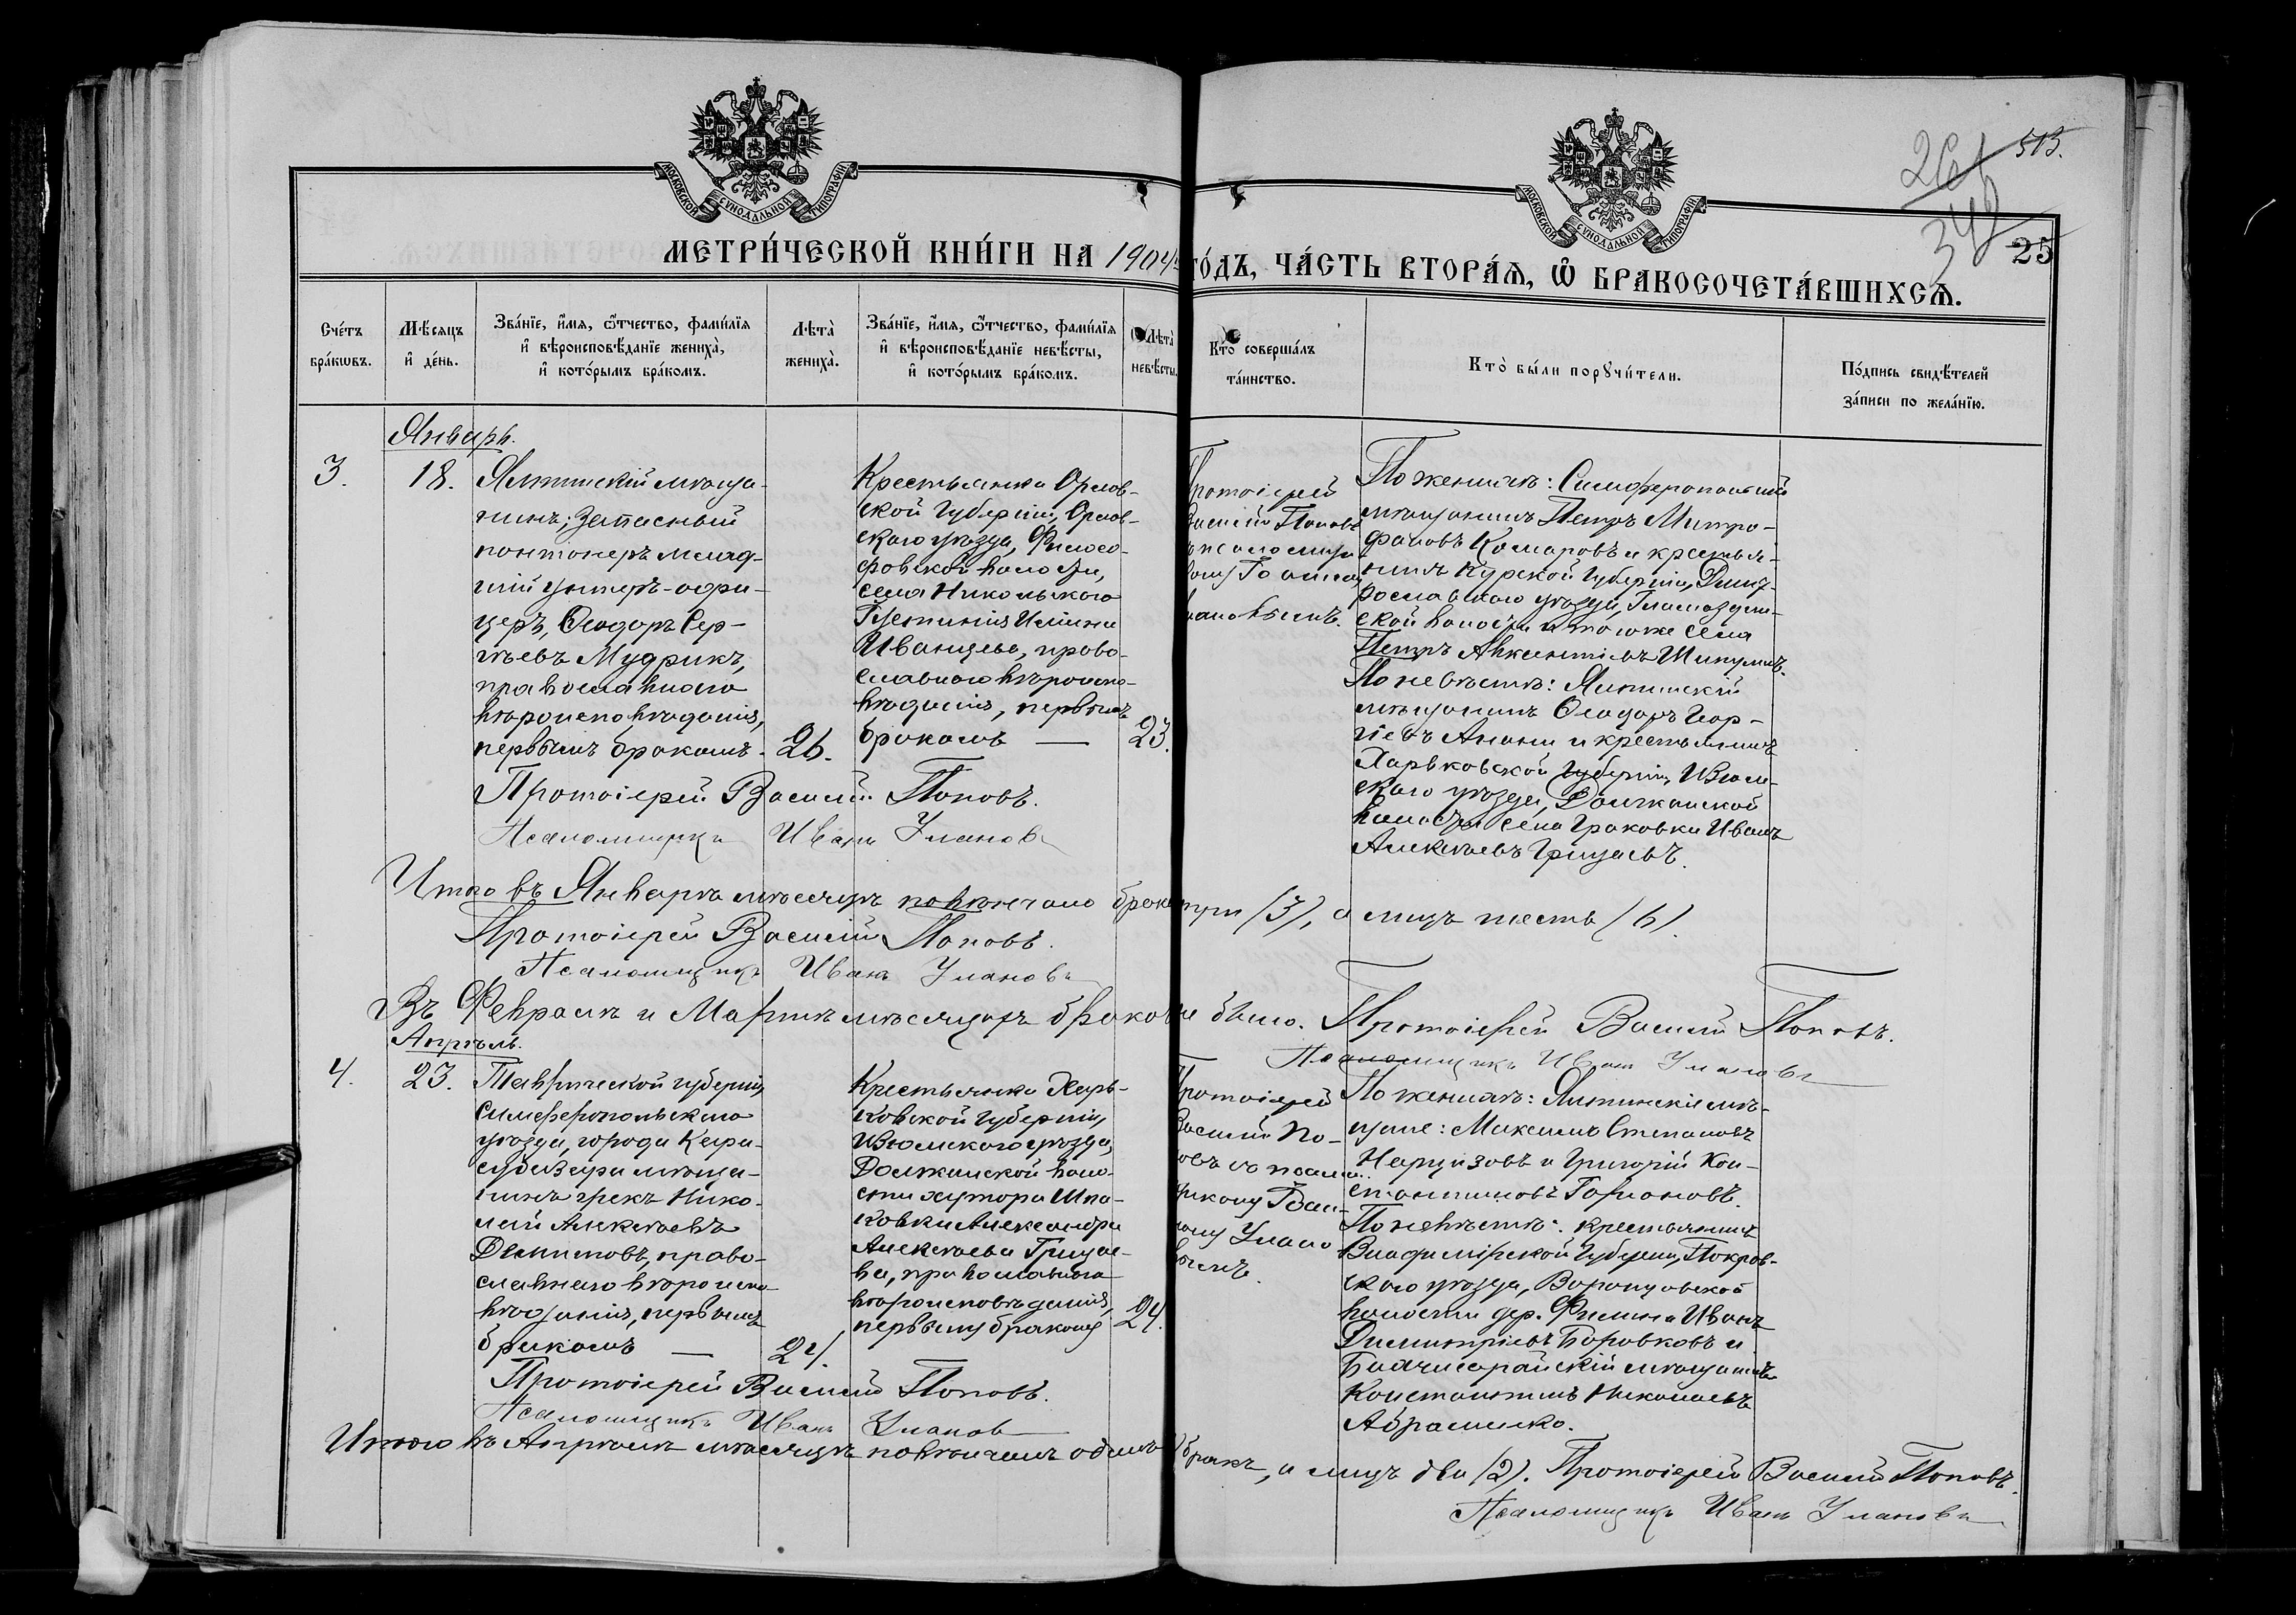 261
513.
348
МОСКОВСКОЙ СУНОДАЛЬНОЙ ТИПОГРАФІИ
МОСКОВСКОЙ СУНОДАЛЬНОЙ ТИПОГРАФІИ
25
МЕТРИ́ЧЕСКОЙ КНИ́ГИ НА 1904 ГО́ДЪ, ЧА́СТЬ ВТОРА́Я, Ѿ БРАКОСОЧЕТА́ВШИХСѦ.
Сче́тъ
бра́кѡвъ.
Мѣ́сяцъ
и҆ де́нь.
Зва́нїе, и҆́мя, ѻ҆́тчество, фами́лїя
и҆ вѣроисповѣ́данїе жениха̀,
и҆ кото́рымъ бра́комъ.
Лѣта̀
жениха̀.
Зва́нїе, и҆́мя, ѻ҆́тчество, фами́лїя
и҆ вѣроисповѣ́данїе невѣ́сты,
и҆ кото́рымъ бра́комъ.
Лѣта̀
невѣ́сты.
Кто̀ соверша́лъ
та́инство.
Кто̀ бы́ли порꙋчи́тели.
По́дпись свидѣ́телей
за́писи по жела́нїю.
Январь.
3.
18.
Ялтинскій мѣща-
нинъ; запасный
понтонеръ млад-
шій унтеръ-офи-
церъ, Ѳеодоръ Сер-
гѣевъ Мудрикъ,
православнаго
вѣроисповѣданія,
первымъ бракомъ.
26.
Крестьянка Орлов-
ской губерніи, Орлов-
скаго уѣзда, Филосо-
фовской волости,
села Никольскаго
Іустинія Ильина
Иванцева, право-
славнаго вѣроиспо-
вѣданія, первымъ
бракомъ —
23.
Протоіерей
Василій Поповъ
съ псаломщи-
комъ Іоанномъ
Улановымъ.
По женихѣ: Симферопольскій
мѣщанинъ Петръ Митро-
фановъ Комаровъ и крестья-
нинъ Курской губерніи,
уѣзда,
ской волости и того же села
Петръ Авксентіевъ
По невѣстѣ: Ялтинскій
мѣщанинъ Ѳеодоръ Геор-
гіевъ Ананьи и крестьянинъ
Харьковской губерніи, Изюм-
скаго уѣзда, Должанской
волости села Граковки Иванъ
Алексѣевъ Грицаевъ.
Протоіерей Василій Поповъ.
Псаломщикъ Иванъ Улановъ
Итого въ Январѣ мѣсяцѣ повѣнчано браковъ три (3), а лицъ шесть (6).
Протоіерей Василій Поповъ.
Псаломщикъ Иванъ Улановъ
Въ Февралѣ и Мартѣ мѣсяцахъ браковъ не было. Протоіерей Василій Поповъ.
Псаломщикъ Иванъ Улановъ
Апрѣль.
4.
23.
Таврической губерніи,
Симферопольскаго
уѣзда, города Кара-
субазара мѣща-
нинъ грекъ Нико-
лай Алексѣевъ
право-
славнаго вѣроиспо-
вѣданія, первымъ
бракомъ —
24.
Крестьянка Харь-
ковской губерніи,
Изюмскаго уѣзда,
Должанской воло-
сти хутора Шпа-
ковки Александра
Алексѣева Грицае-
ва, православнаго
вѣроисповѣданія,
первымъ бракомъ
24.
Протоіерей
Василій По-
повъ съ псалом-
щикомъ Іоан-
номъ Улано-
вымъ.
По женихѣ: Ялтинскіе мѣ-
щане: Максимъ Степановъ
Нарцизовъ и Григорій Кон-
стантиновъ
По невѣстѣ: крестьянинъ
Владимірской губерніи, Покров-
скаго уѣзда, Воронцовской
волости дер. Филина Иванъ
Димитріевъ Боровковъ и
Бахчисарайскій мѣщанинъ
Константинъ Николаевъ
Абраменко.
Протоіерей Василій Поповъ.
Псаломщикъ Иванъ Улановъ
Итого въ Апрѣлѣ мѣсяцѣ повѣнчанъ одинъ бракъ, а лицъ два (2). Протоіерей Василій Поповъ.
Псаломщикъ Иванъ Улановъ